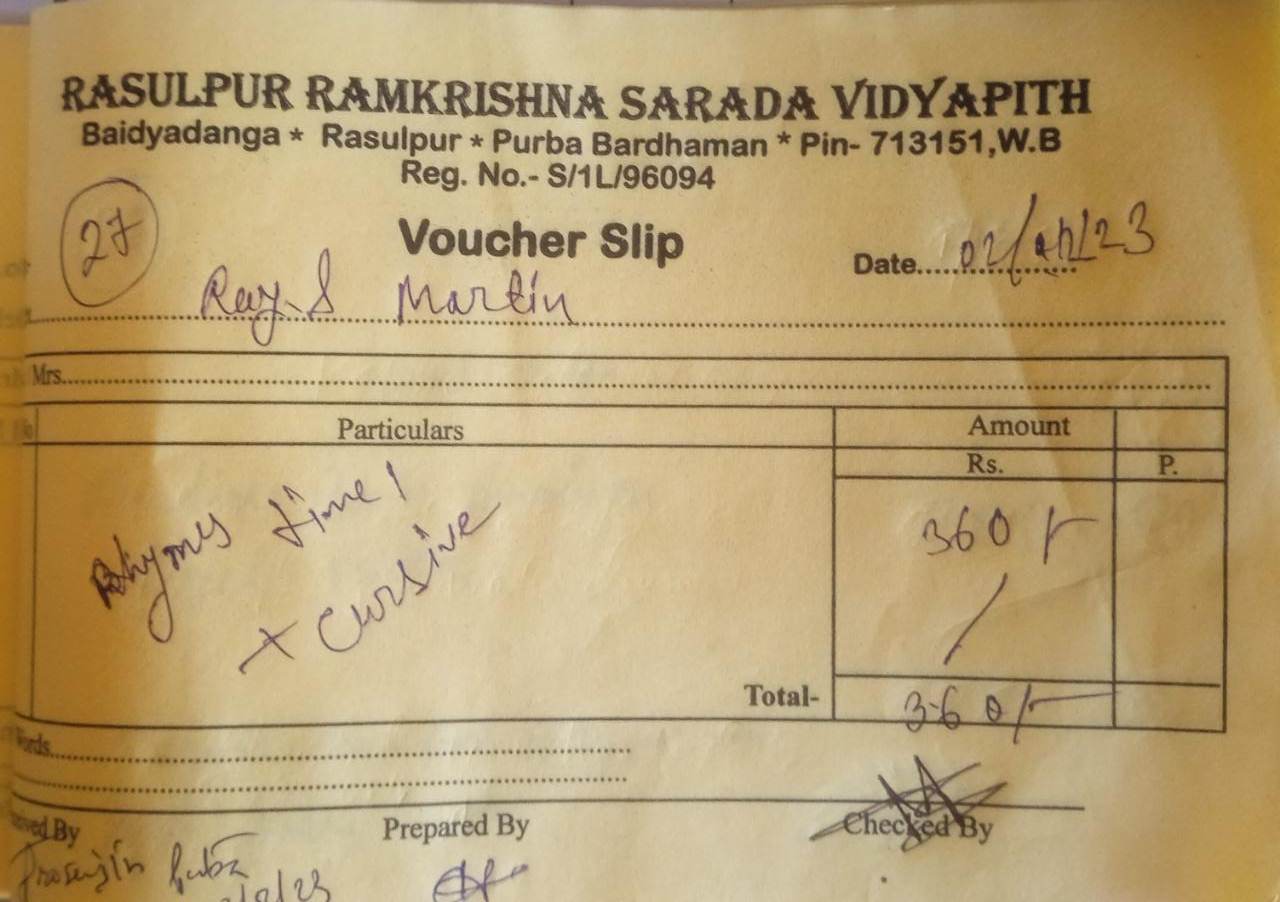 RASULPUR RAMKRISHNA SARADA VIDYAPITH
Baidyadanga * Rasulpur * Purba Bardhaman * Pin- 713151,W.B
Reg. No.- S/1L/96094
27
Voucher Slip
Date..... 02/ /23
Ray. S Martin
Mrs.
Particulars Amount
Rs. P.
Rhymes time 1
+ Cursive
360/-
/
Total- 360/-
Words
Prepared By Checked By
Prosenjin